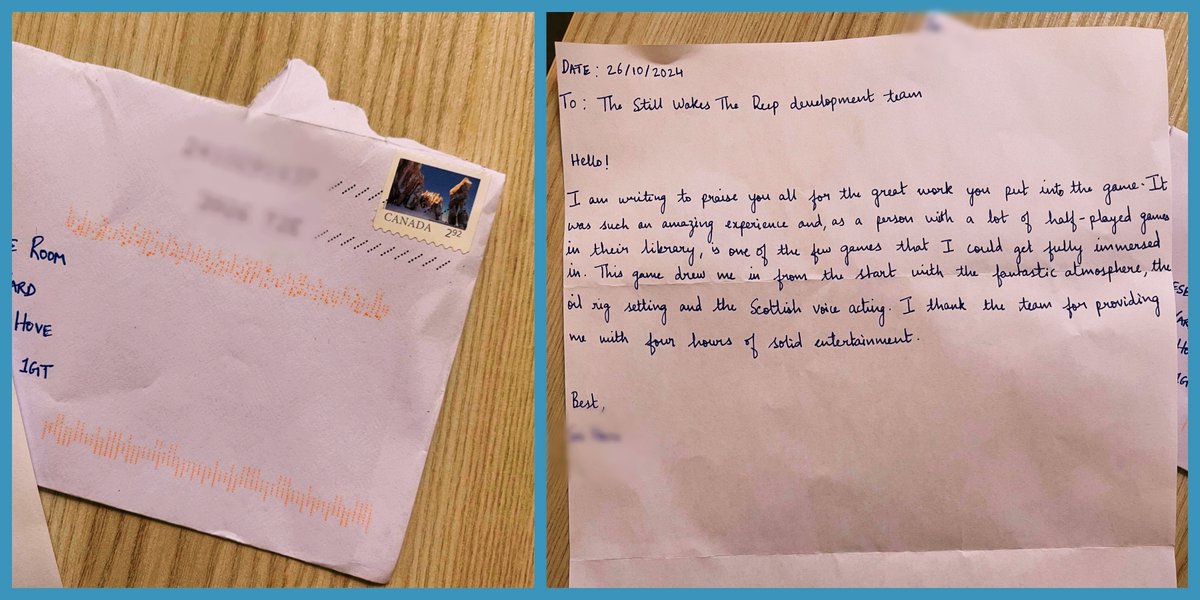 CANADA
2⁹²
E ROOM
ARD
HOVE
1GT
DATE: 26/10/2024
To: The Still Wakes The Deep development team
Hello!
I am writing to praise you all for the great work you put into the game. It
was such an amazing experience and, as a person with a lot of half-played games
in their library, is one of the few games that I could get fully immersed
in. This game drew me in from the start with the fantastic atmosphere, the
oil rig setting and the Scottish voice acting. I thank the team for providing
me with four hours of solid entertainment.
Best,
1GT